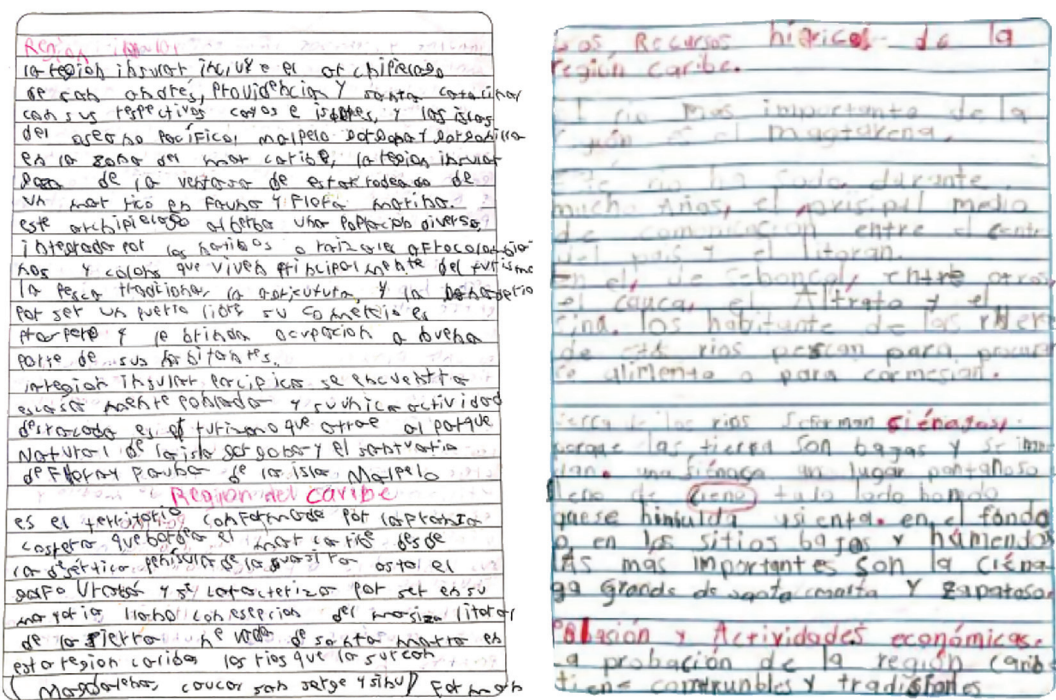 Región insular
la region insular incluye el archipielago
de san andrés, Providencia Y santa catalina
con sus respectivos cayos e islotes, y las islas
del oseano Pacífico, malpelo Gorgona Y Gorgonilla
en la zona del mar caribe, la region insular
goza de la ventaja de estar rodeada de
un mar rico en Fauna Y Flora marina.
este archipielago alberga una Poblacion diversa,
integrada por los nativos o raizales afrocolombia
nos y colons que viven principalmente del turismo
la Pesca tradicional, la agricultura, Y la
Por ser un puerto libre su comercio es
prospero Y le brinda ocupacion a buena
parte de sus habitantes.
la region insular pacifica se encuentra
escasa mente poblada Y su unica actividad
destacada es el turismo que atrae al parque
Natural de la isla gorgona y el santuario
de Flora y Fauna de la isla Malpelo
Region del caribe
es el territorio conformado por la
costera que bordea el mar caribe desde
la désertica península de la guajira asta el
golfo Uraba Y se caracteriza por ser en su
mayoria llano con esepcion del masiso litoral
de la sierra ne vada de santa marta en
esta region caribe los rios que la surcan
(Magdalena, cauca san jorge y sinu) Forman
Los Recursos hígricos de la
región caribe.
El rio mas importante de la
región es el magdarena.
Este rio ha sido, durante
mucho Años, el prisipal medio
de comunicación entre el centr
del país y el litoran.
En el, de sebancal, entre otros
el cauca, el Altrato y el
cina. los habitante de las riber
de rios pescan para procur
alimento o para comesian.
cerca de los rios se forman siénagas,
porque las tierra son bagas y se inun
dan. una siénaga un lugar pantanoso
lleno de cieno
quese hinsulda usienta. en el fondo
o en los sitios bajos y húmendos
LAs mas importantes son la ciéna
ga grande de santa marta Y Zapatosa.
Poblasión y Actividades económicas.
La probación de la región carib
tiene comrunbles y tradisiones